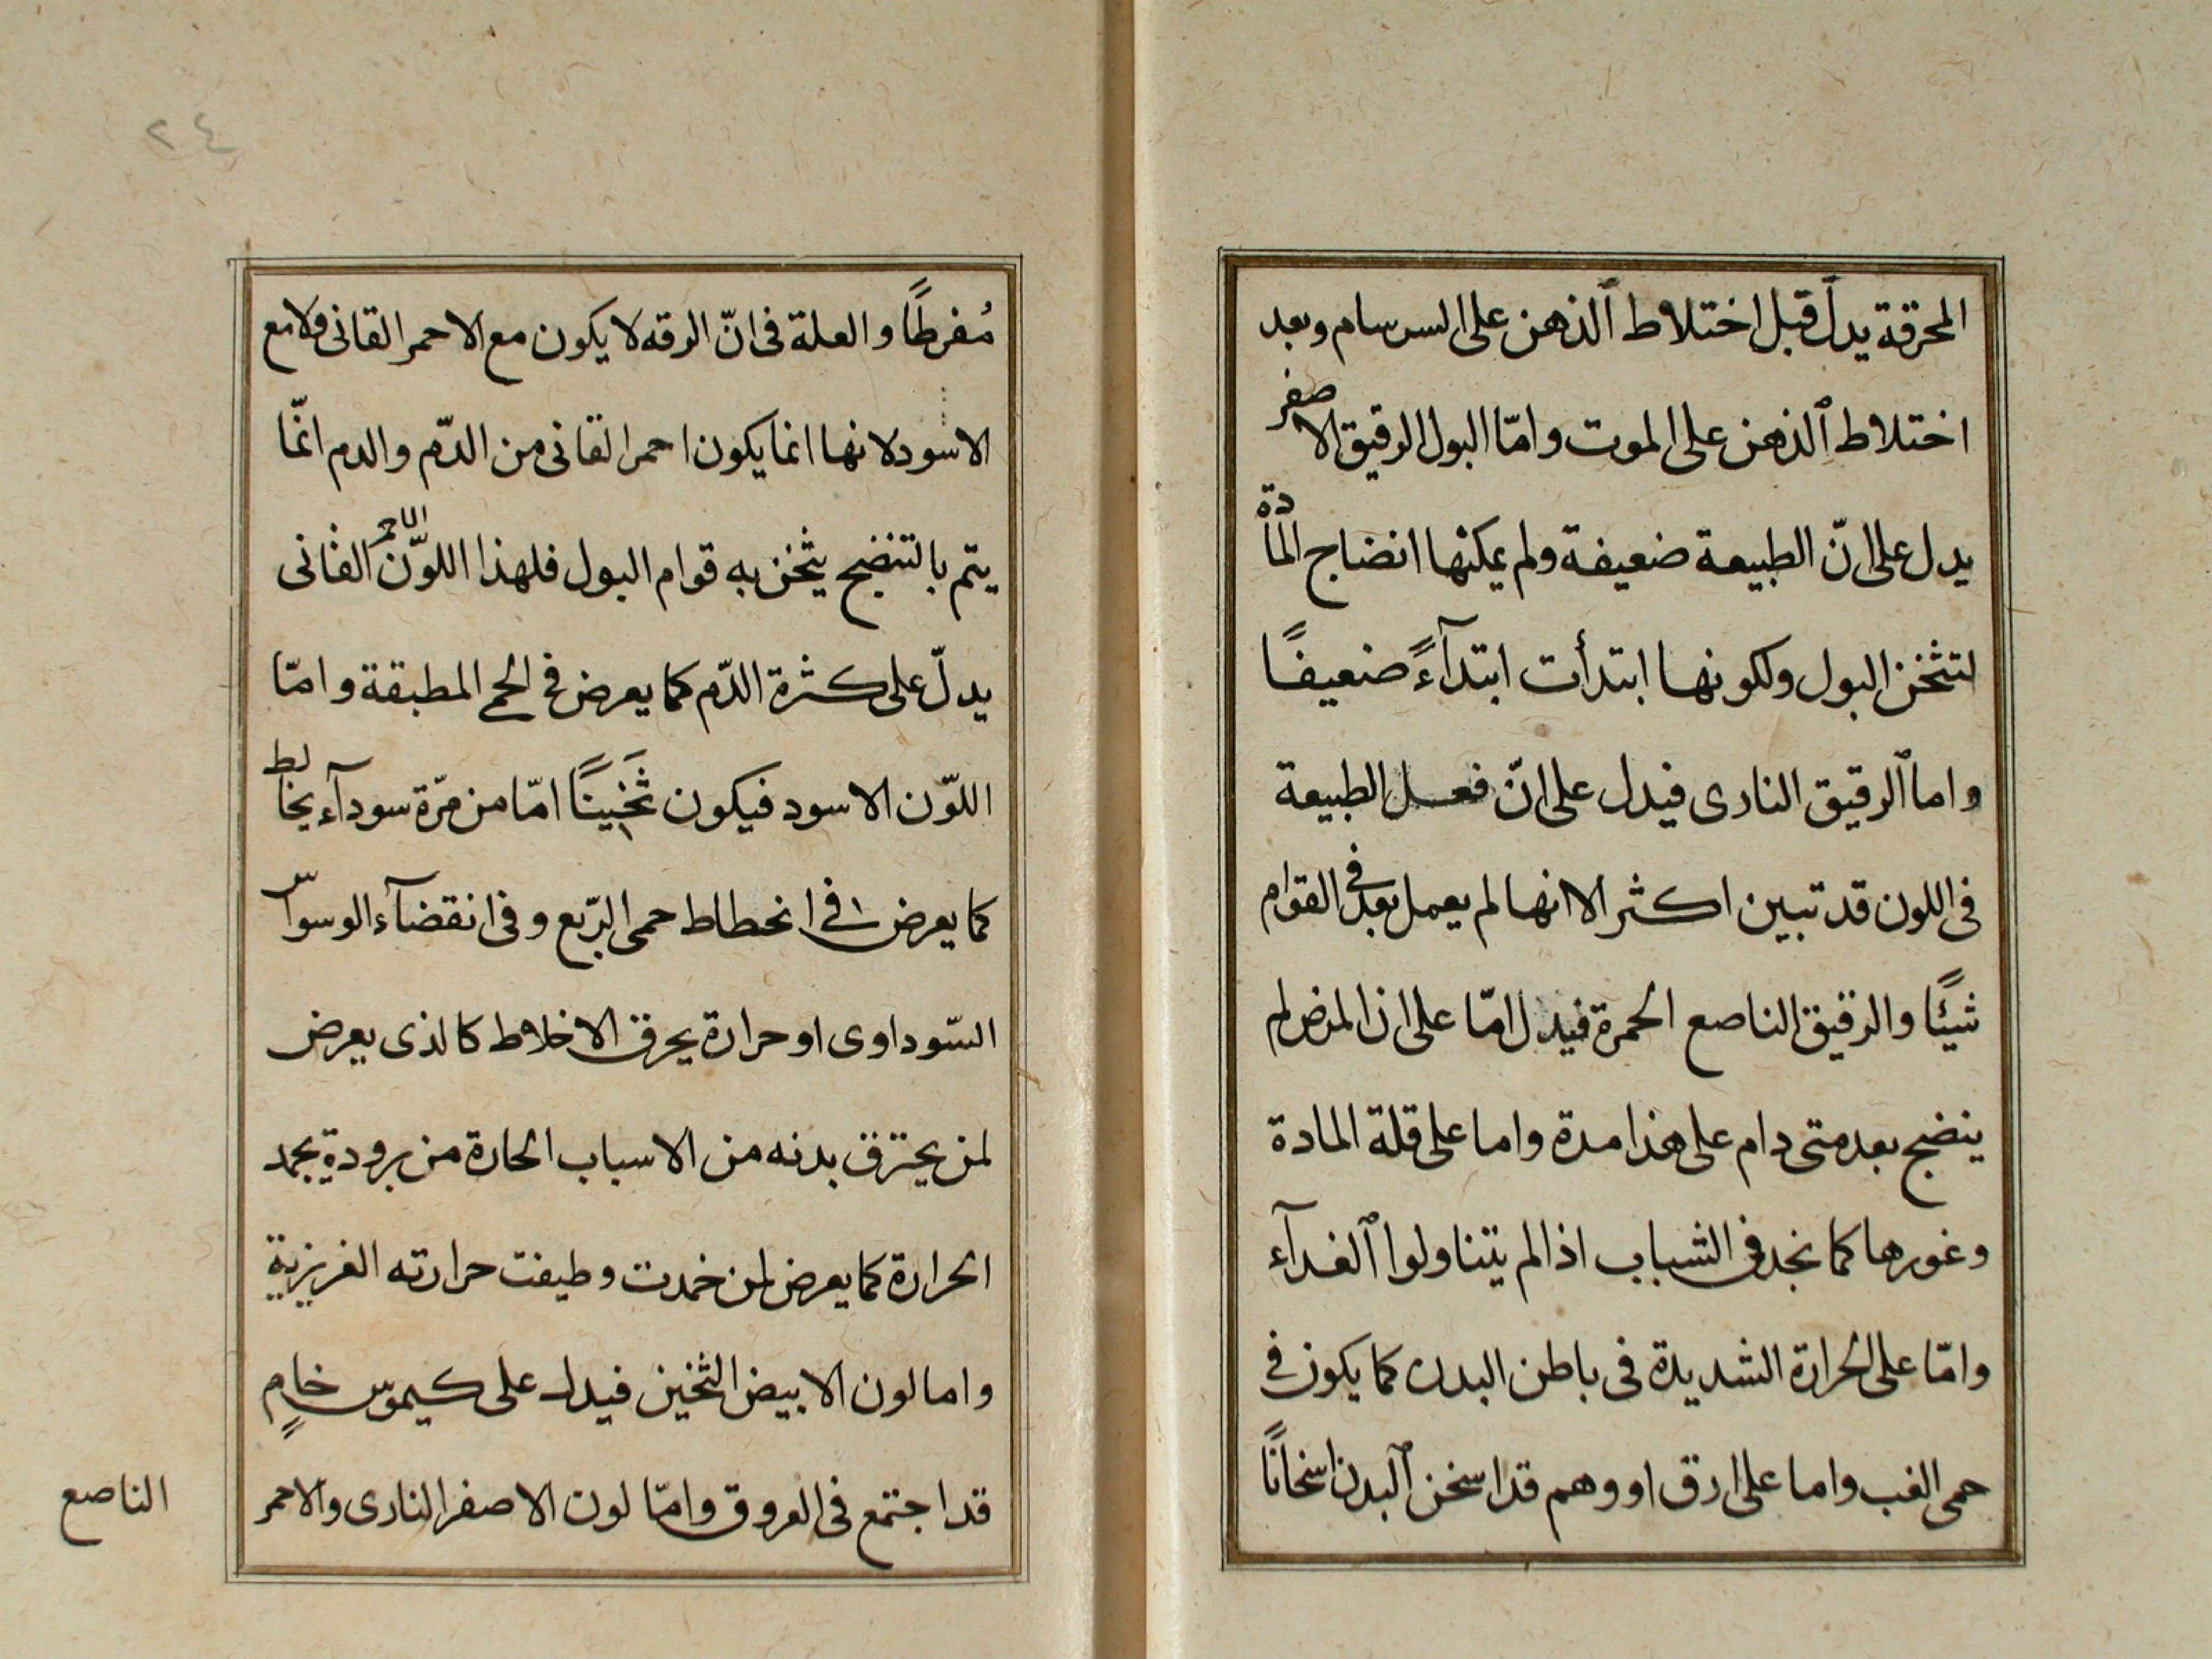 المحرقة يدلّ قبل اختلاط الذهن على السرسام وبعد
اختلاط الذهن على الموت وامّا البول الرقيق الاصفر
يدل على انّ الطبيعة ضعيفة ولم يمكنها انضاج المادة
لتثخن البول ولكونها ابتدأت ابتدآءً ضعيفًا
واما الرقيق النارى فيدل على انّ فعل الطبيعة
فى اللون قد تبين اكثر الا انها لم يعمل بعد فى القوام
شيئًا والرقيق الناصع الحمرة فيدل امّا على ان المرض لم
ينضج بعد متى دام على هذا مدة واما على قلة المادة
وغورها كما نجد فى الشباب اذا لم يتناولوا الغدآء
وامّا على الحرارة الشديدة فى باطن البدن كما يكون فى
حمى الغب واما على ارق او وهم قد اسخن البدن اسخانًا
٢٤
مُفرطًا والعلة فى انّ الرقه لا يكون مع الاحمر القانى ولا مع
الاسود لانها انما يكون احمر القانى من الدّم والدم انّما
يتم بالتنضج يثخن به قوام البول فلهذا اللّون الاحمر القانى
يدلّ على كثرة الدّم كما يعرض فى الحمى المطبقة وامّا
اللّون الاسود فيكون ثَخينًا امّا من مرّة سودآء يخالط
كما يعرض فى انحطاط حمى الرّبع وفى انقضآء الوسواس
السّوداوى او حرارة يحرق الاخلاط كالذى يعرض
لمن يحترق بدنه من الاسباب الحارة من برودة يجمد
الحرارة كما يعرض لمن خمدت وطيفت حرارته الغريزية
واما لون الابيض الثخين فيدل على كيموس خامٍ
قد اجتمع فى العروق وامّا لون الاصفر النارى والاحمر
الناصع